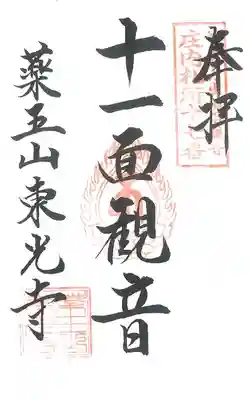 奉拝
十一面観音
薬王山東光寺